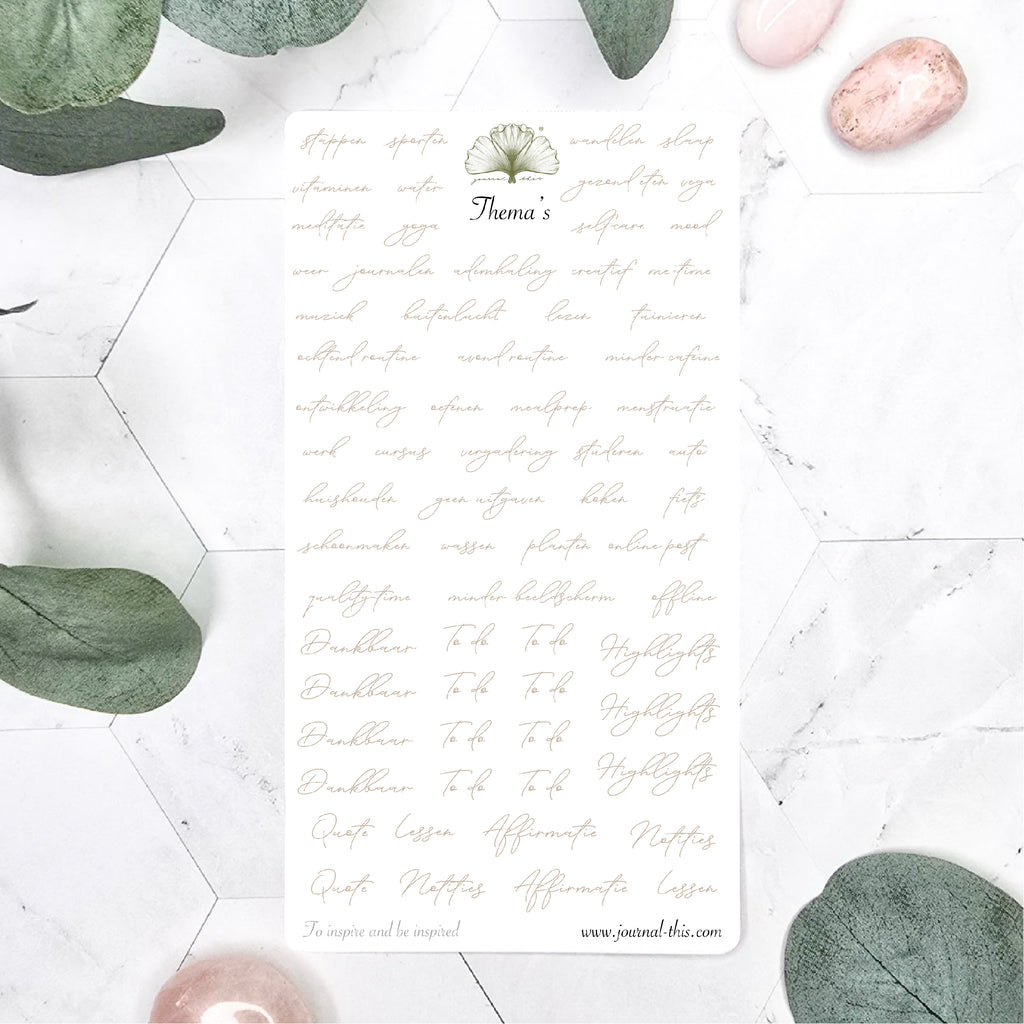 stappen sporten wandelen slaap
journal this
vitaminen water gezond eten vega
Thema's
meditatie yoga selfcare mood
weer journalen ademhaling creatief me-time
muziek buitenlucht lezen tuinieren
ochtend routine avond routine minder cafeïne
ontwikkeling oefenen mealprep menstruatie
werk cursus vergadering studeren auto
huishouden geen uitgaven koken fiets
schoonmaken wassen planten online post
quality-time minder beeldscherm offline
Dankbaar To do To do Highlights
Dankbaar To do To do Highlights
Dankbaar To do To do Highlights
Dankbaar To do To do
Quote Lessen Affirmatie Notities
Quote Notities Affirmatie Lessen
To inspire and be inspired www.journal-this.com